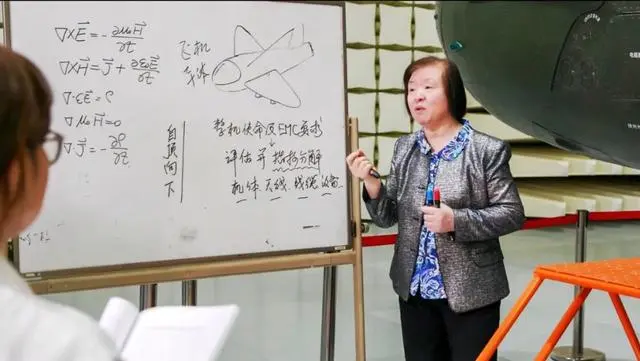 ∇×E⃗ = -∂μ₀H⃗/∂t
∇×H⃗ = J⃗ + ∂ε₀E⃗/∂t
∇·εE⃗ = ρ
∇·μ₀H⃗ = 0
∇·J⃗ = -∂ρ/∂t
飞机
自顶向下
整机使命及EMC要求
评估并指标分解
机体.天线.线缆.设备